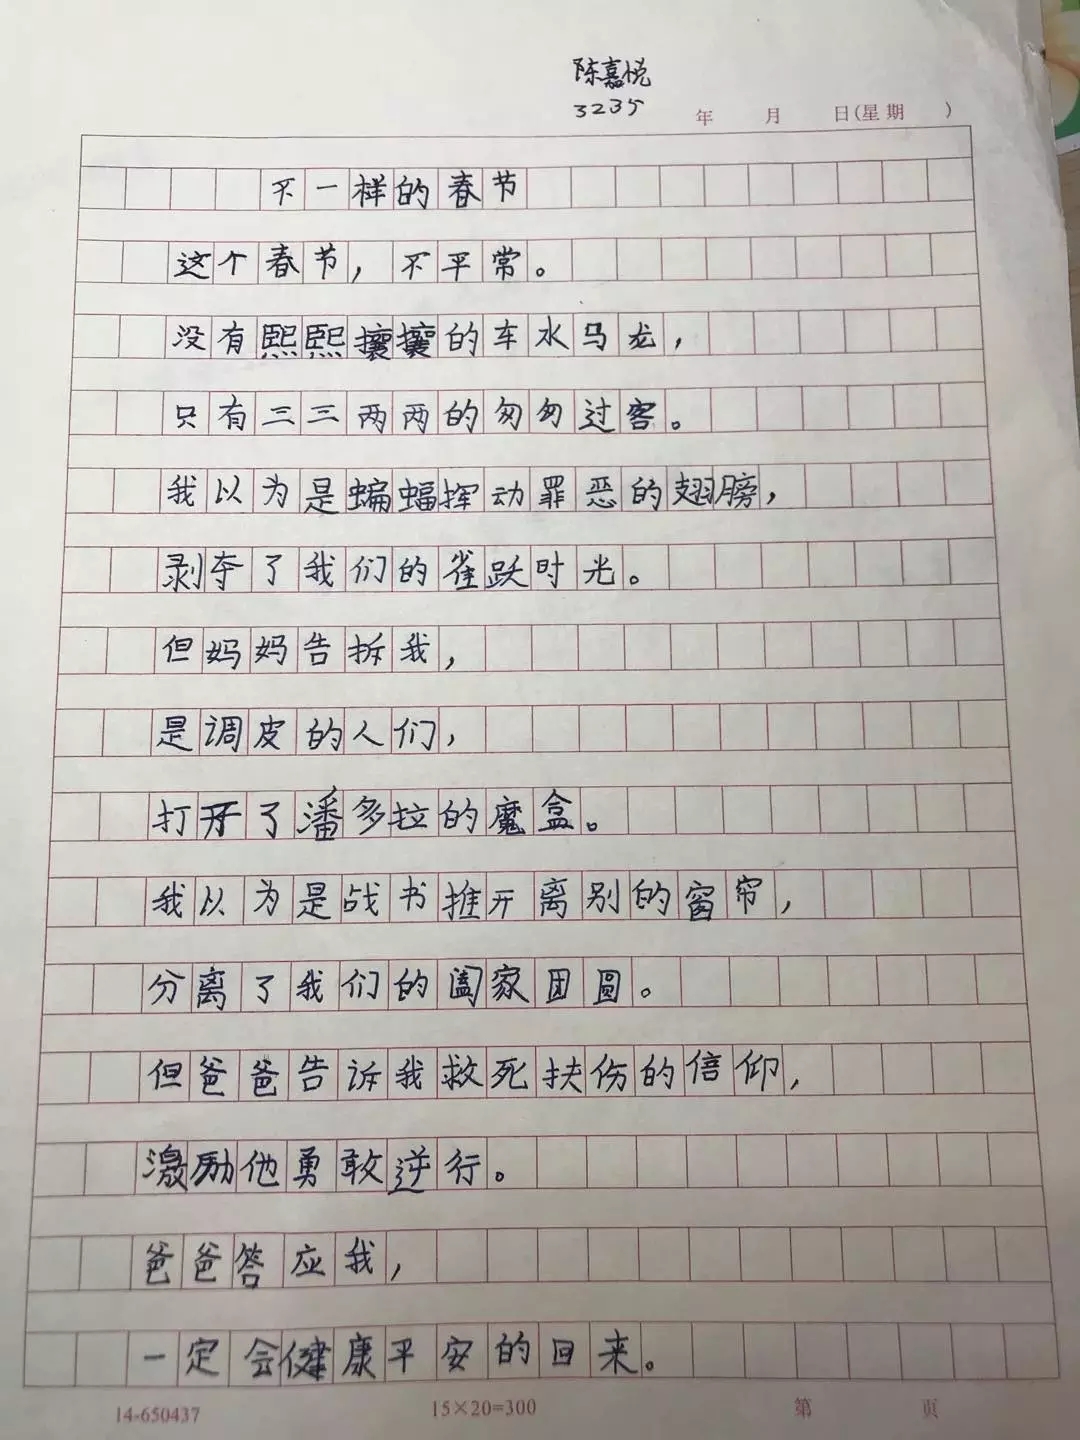 陈嘉悦
3235
年 月 日(星期 )
不一样的春节
这个春节，不平常。
没有熙熙攘攘的车水马龙，
只有三三两两的匆匆过客。
我以为是蝙蝠挥动罪恶的翅膀，
剥夺了我们的雀跃时光。
但妈妈告拆我，
是调皮的人们，
打开了潘多拉的魔盒。
我以为是战书推开离别的窗帘，
分离了我们的阖家团圆。
但爸爸告诉我救死扶伤的信仰，
激励他勇敢逆行。
爸爸答应我，
一定会健康平安的回来。
14-650437 15×20=300 第 页